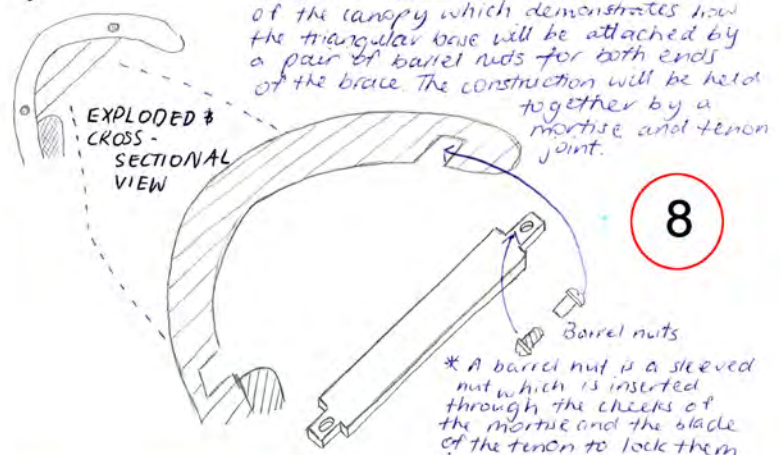 of the canopy which demonstrates how
the triangular base will be attached by
a pair of barrel nuts for both ends
of the brace. The construction will be held
together by a
mortise and tenon
joint.
EXPLODED &
CROSS-
SECTIONAL
VIEW
8
Barrel nuts
* A barrel nut is a sleeved
nut which is inserted
through the cheeks of
the mortise and the blade
of the tenon to lock them